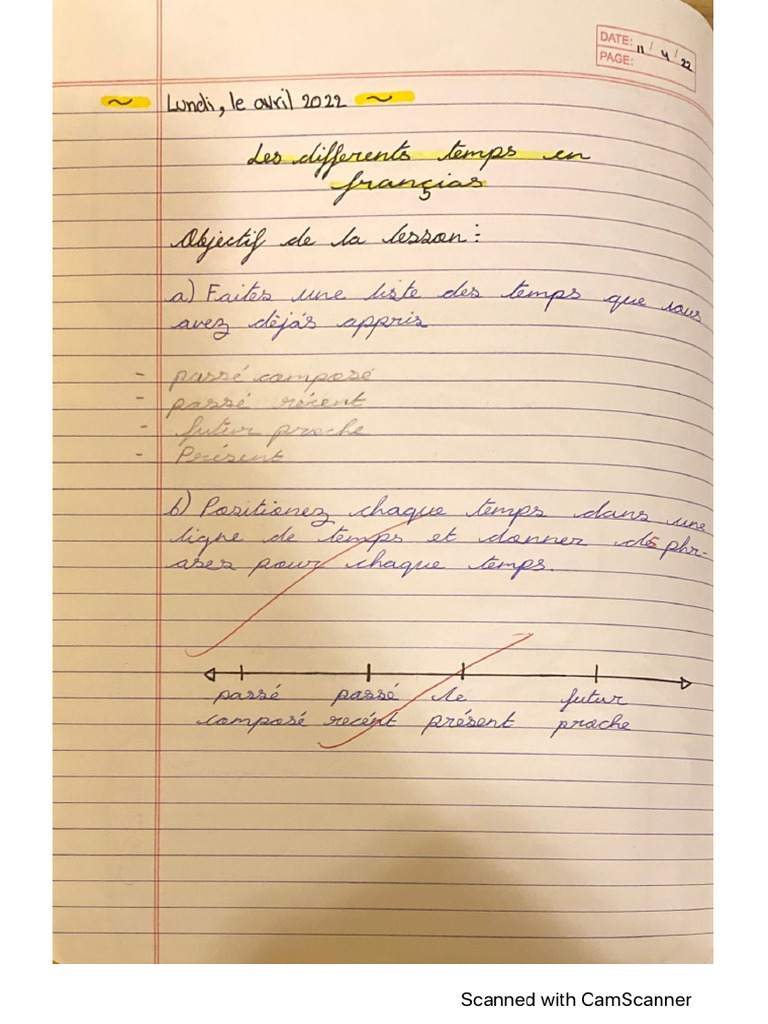 DATE: 11/4/22
PAGE:
~ Lundi, le avril 2022 ~
Les differents temps en
françias
Objectif de la lesson :
a) Faites une liste des temps que vous
avez dèjás appris
- passé composé
- passé récent
- futur proche
- Présent
b) Positionez chaque temps dans une
ligne de temps et donner des phr-
ases pour chaque temps.
passé passé le futur
composé recént présent proche
Scanned with CamScanner